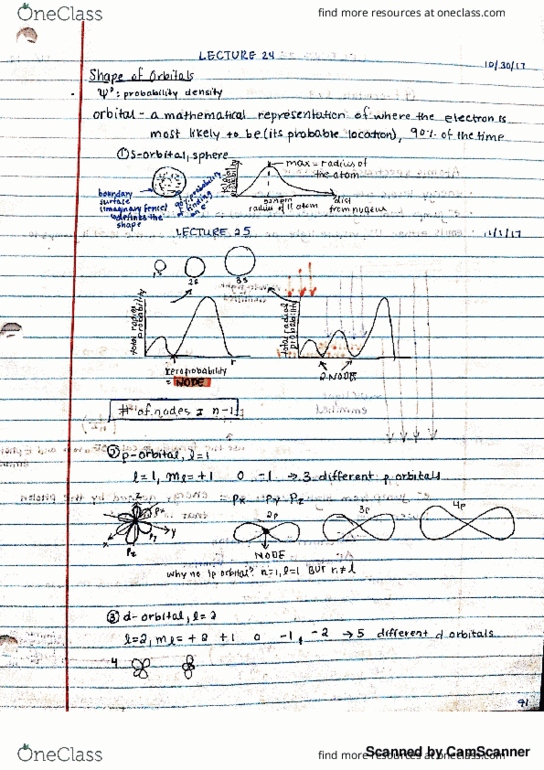 OneClass
find more resources at oneclass.com
LECTURE 24
10/30/17
Shape of Orbitals
ψ²: probability density
orbital - a mathematical representation of where the electron is
most likely to be (its probable location), 90% of the time
① S-orbital, sphere
max = radius of
the atom
boundary
surface
(imaginary fence)
defines the
shape
90% probability
of finding
radius of H atom
dist
from nucleus
LECTURE 25
11/1/17
1s
2s
3s
total radial
probability
total radial
probability
r
zero probability
= NODE
2 NODES
# of nodes = n-1
② p-orbital, l=1
l=1, ml = +1 0 -1 → 3 different p orbitals
Px Py Pz
z
Px
Py
y
x
Pz
2p
3p
4p
NODE
why no 1p orbital? n=1, l=1 BUT n≠l
③ d-orbital, l=2
l=2, ml = +2 +1 0 -1, -2 → 5 different d orbitals
4
91
OneClass
find more resources at oneclass.com
Scanned by CamScanner